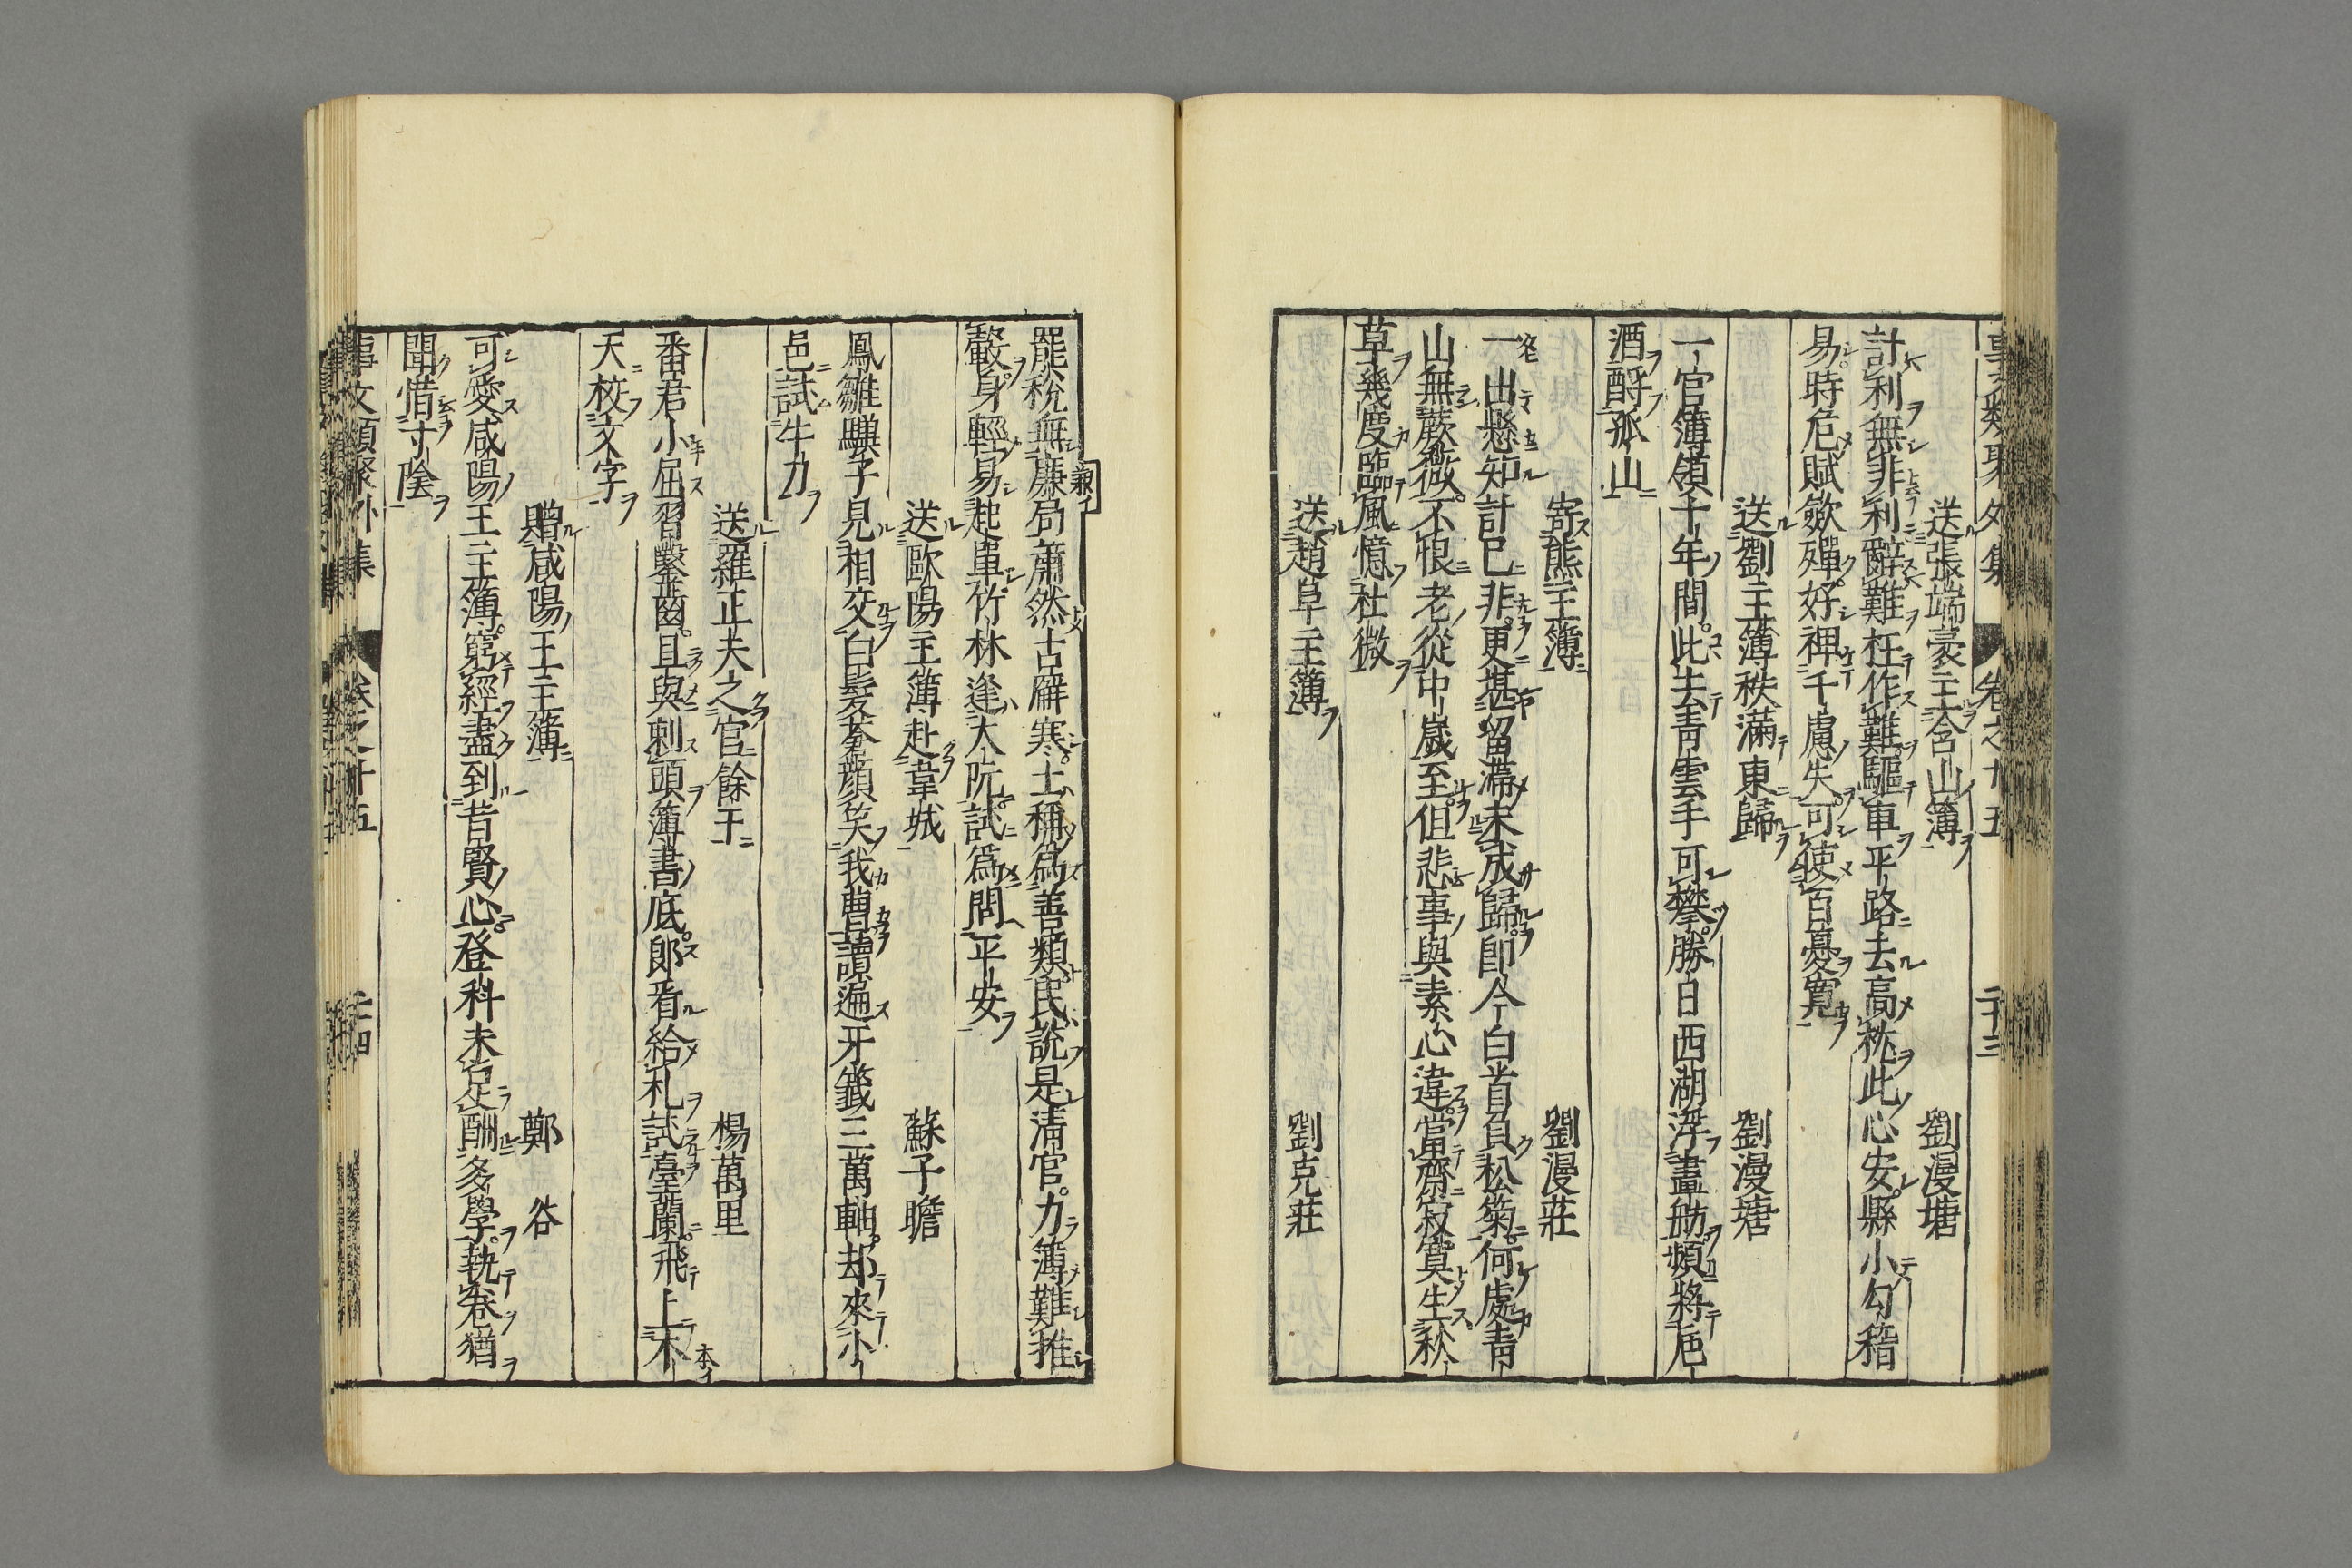 送張端豪主含山簿　劉漫塘
計利無非利辭難枉作難驅車平路去高桃此心安縣小勾稽
易時危賦歛殫好裨千慮失可使百憂寬
送劉主簿秩滿東歸　劉漫塘
一官簿領千年間此去青雲手可攀勝日西湖浮畫舫頻將巵
酒酹孤山
寄熊主簿　劉漫莊
一出懸知計已非更堪留滯未成歸即今白首負松菊何處青
山無蕨薇不恨老從中歲至但悲事與素心違當齋寂寞生秋
草幾度臨風憶社微
送趙阜主簿　劉克莊
罷稅無廉局蕭然古廨寒士稱爲善類民說是清官力簿難推
轂身輕易起單竹林逢大阮試爲問平安
送歐陽主簿赴韋城　蘇子瞻
鳳雛驥子見相交白髮蒼顏笑我曹讀遍牙籤三萬軸却來小
邑試牛刀
送羅正夫之官餘干　楊萬里
番君小屈習鑿齒且與刺頭簿書底郞看給札試臺蘭飛上木
天校文字
贈咸陽王主簿　鄭谷
可愛咸陽王主簿窮經盡到昔賢心登科未足酬多學執卷猶
聞惜寸陰
事文類聚外集　卷之十五　二十四